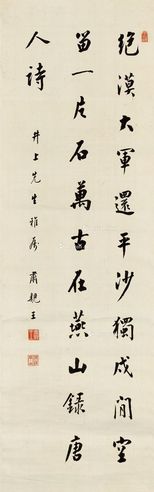 絶漠大軍還平沙獨戍閒空
留一片石萬古在燕山録唐
人詩
井上先生雅属 肅親王